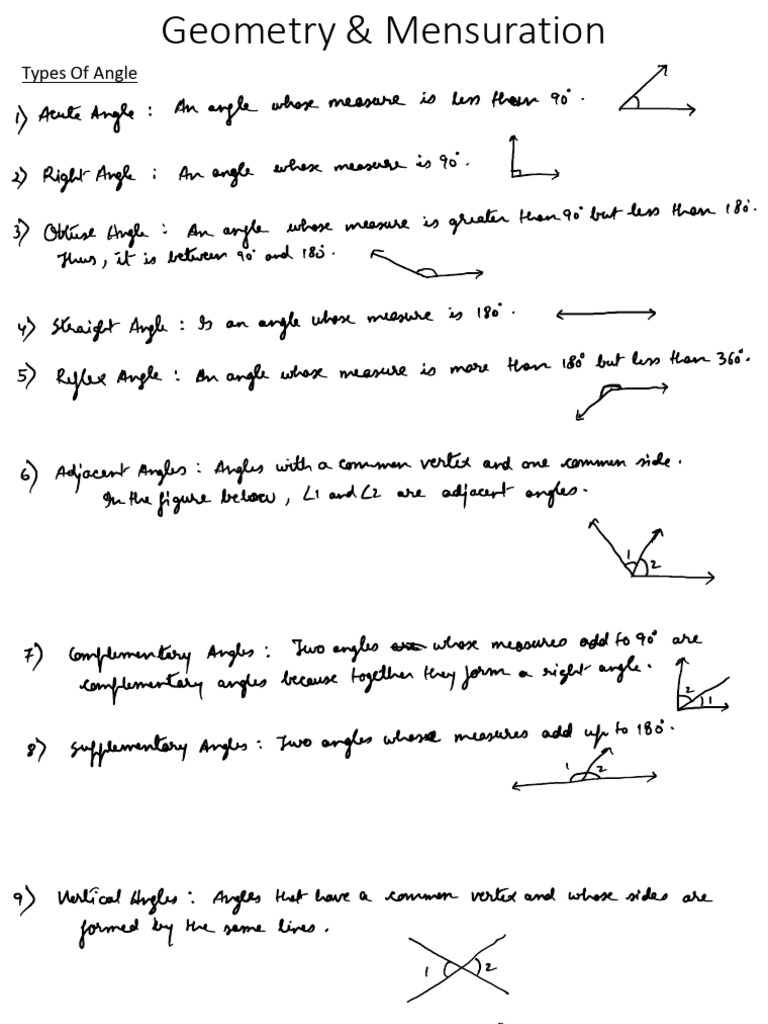 Geometry & Mensuration
Types Of Angle
1) Acute Angle : An angle whose measure is less than 90°.
2) Right Angle : An angle whose measure is 90°.
3) Obtuse Angle : An angle whose measure is greater than 90° but less than 180°.
Thus, it is between 90° and 180°.
4) Straight Angle : Is an angle whose measure is 180°.
5) Reflex Angle : An angle whose measure is more than 180° but less than 360°.
6) Adjacent Angles : Angles with a common vertex and one common side.
In the figure below, ∠1 and ∠2 are adjacent angles.
1 2
7) Complementary Angles : Two angles whose measures add to 90° are
complementary angles because together they form a right angle.
2 1
8) Supplementary Angles : Two angles whose measures add up to 180°.
1 2
9) Vertical Angles : Angles that have a common vertex and whose sides are
formed by the same lines.
1 2